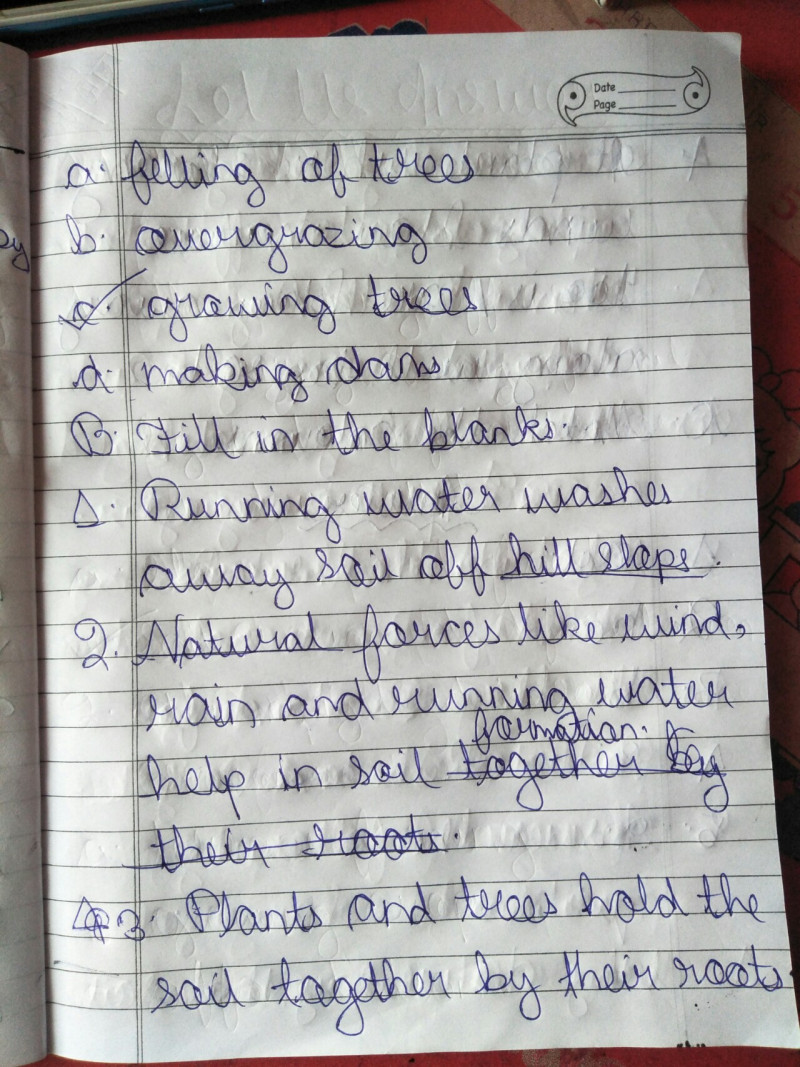 Date
Page
a. felling of trees
b. overgrazing
c. growing trees
d. making dams
B. Fill in the blanks.
1. Running water washes
away soil off hill slops.
2. Natural forces like wind,
rain and running water
formation.
help in soil together by
their roots.
3. Plants and trees hold the
soil together by their roots